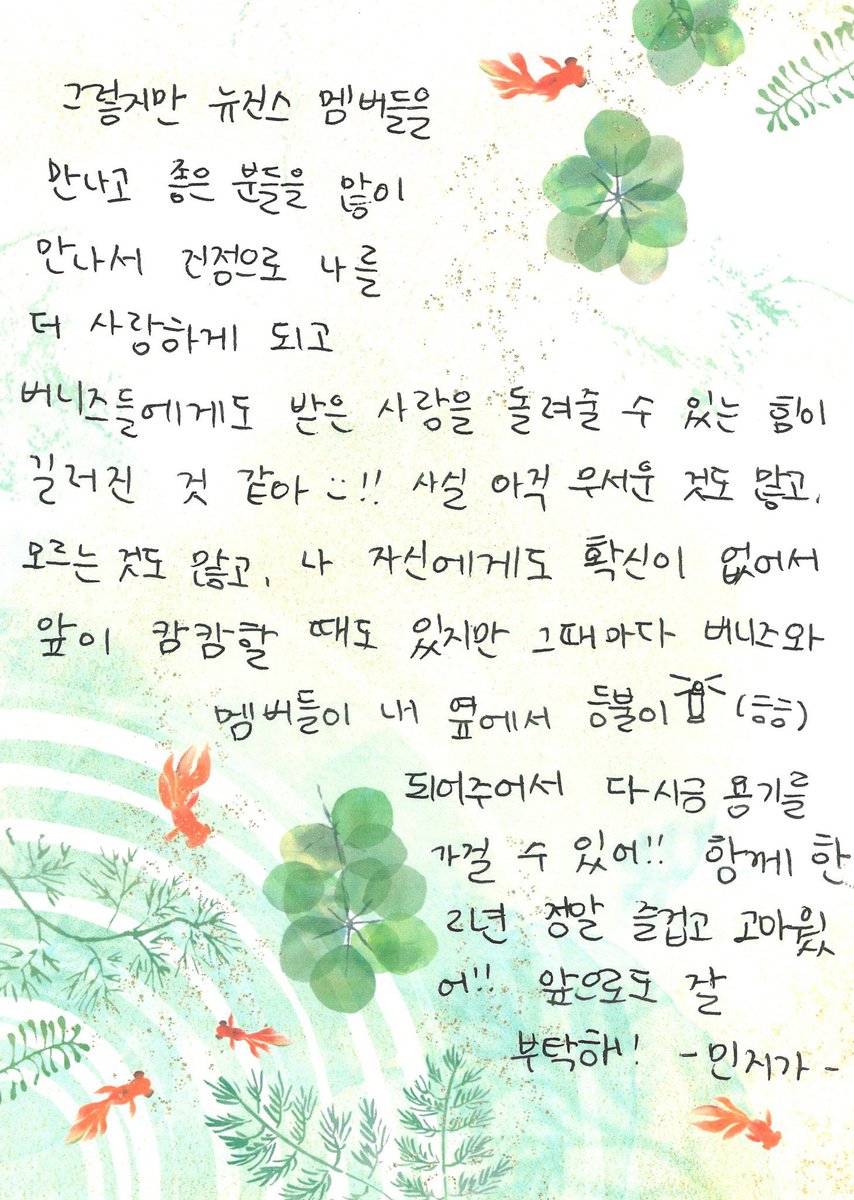 그렇지만 뉴진스 멤버들을
만나고 좋은 분들을 많이
만나서 진정으로 나를
더 사랑하게 되고
버니즈들에게도 받은 사랑을 돌려줄 수 있는 힘이
길러진 것 같아 :)!! 사실 아직 무서운 것도 많고,
모르는 것도 많고, 나 자신에게도 확신이 없어서
앞이 캄캄할 때도 있지만 그때마다 버니즈와
멤버들이 내 옆에서 등불이 (등등)
되어주어서 다시금 용기를
가질 수 있어!! 함께 한
2년 정말 즐겁고 고마웠
어!! 앞으로도 잘
부탁해! -민지가-